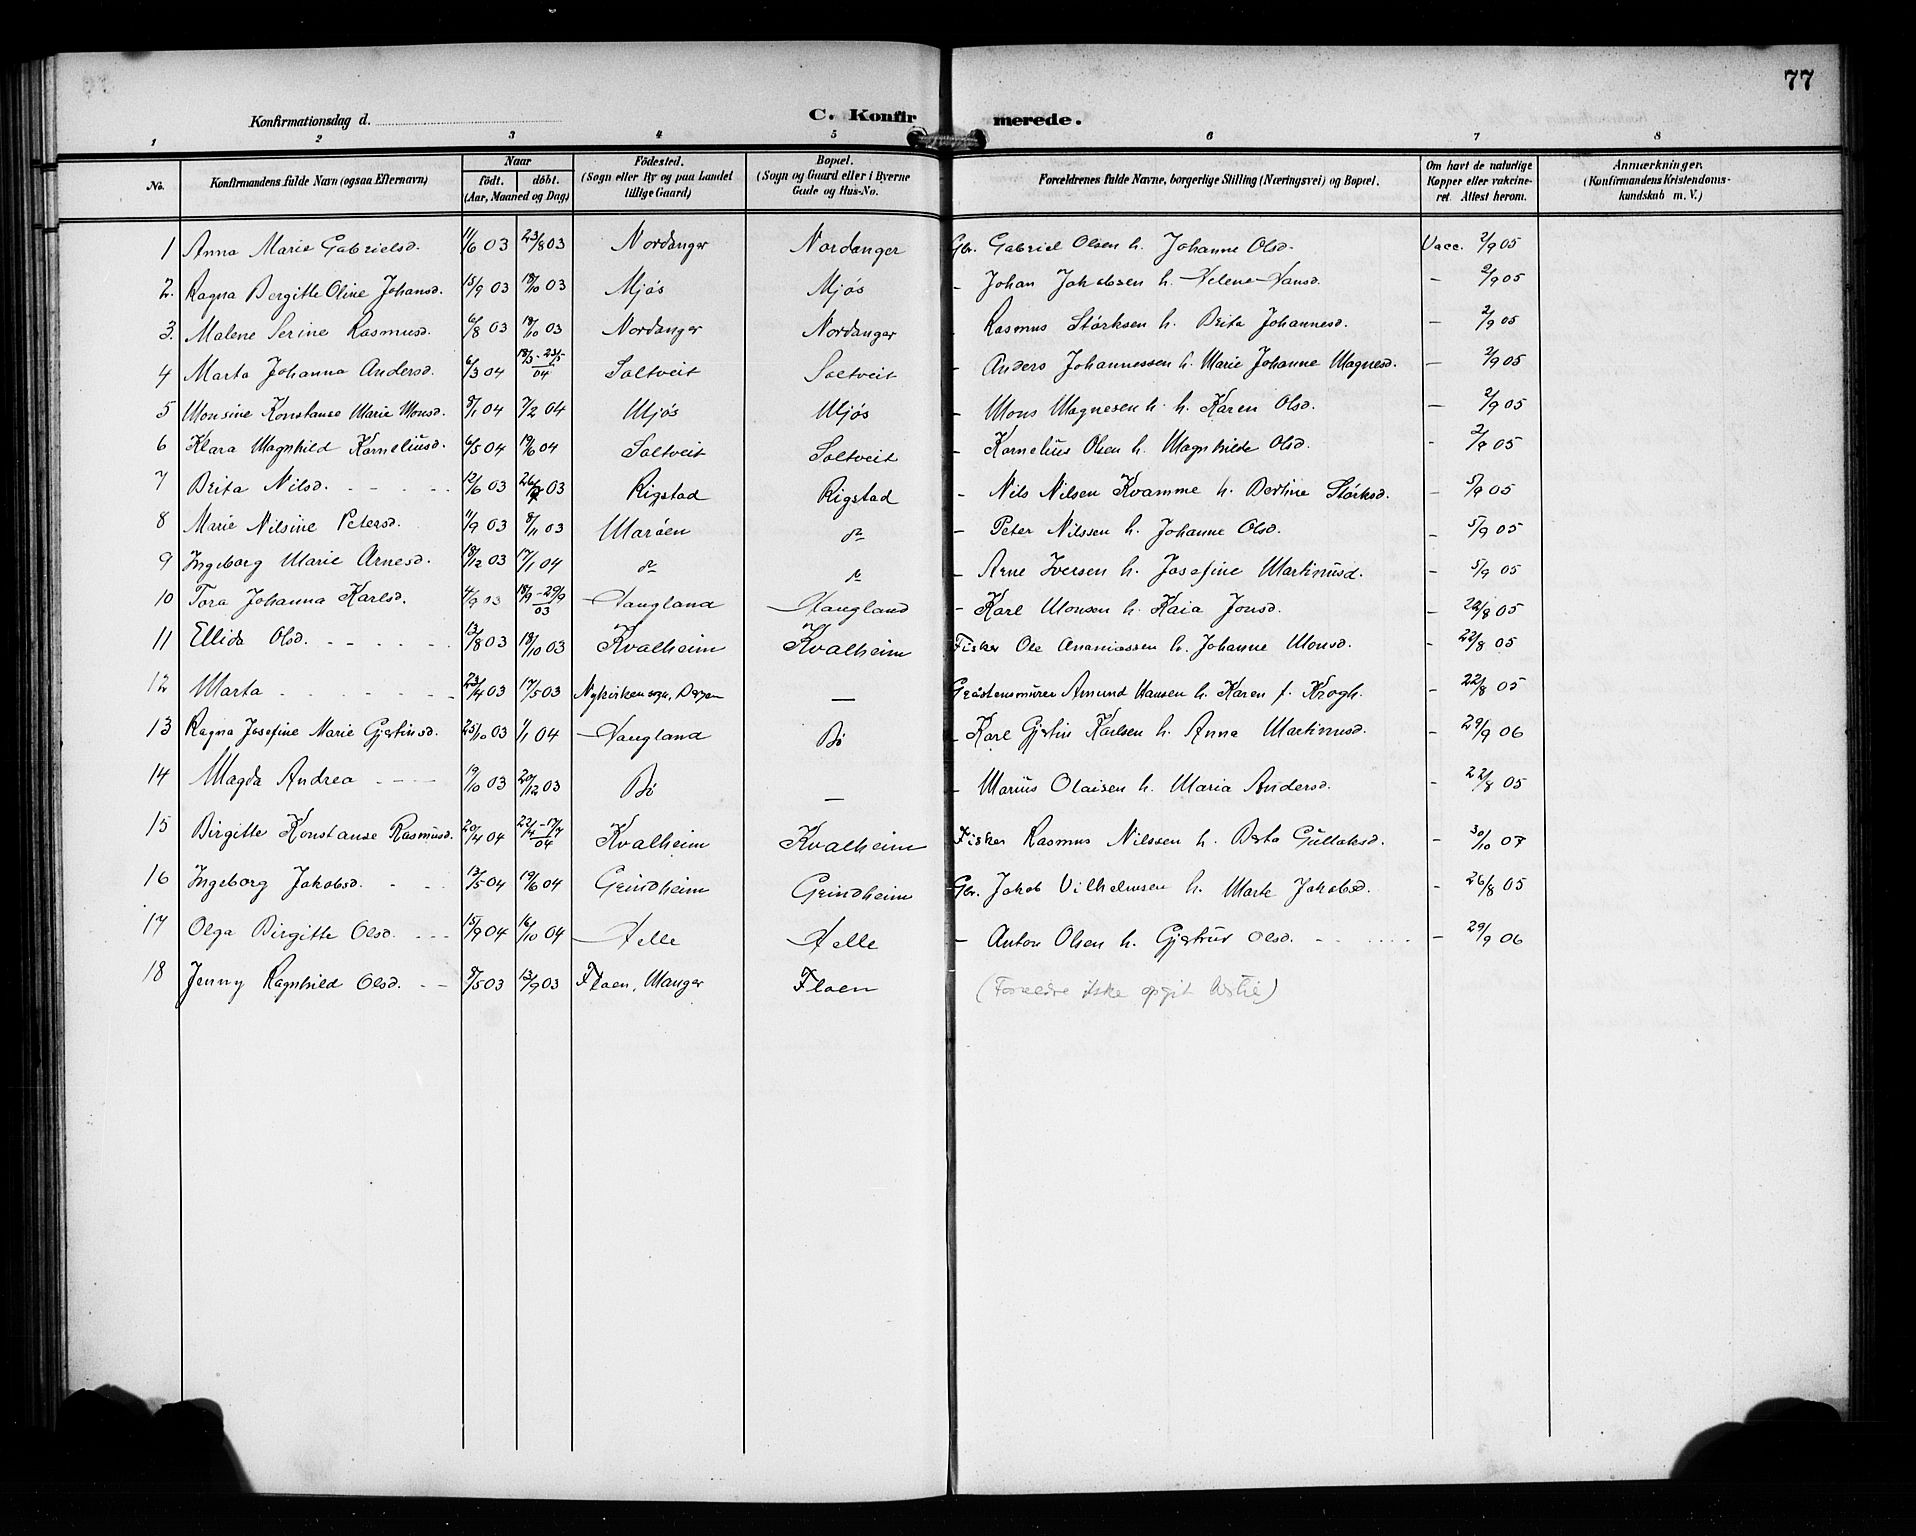 77
Konfirmationsdag d. C. Konfirmerede.
1 2 3 4 5 6 7 8
No. Konfirmandens fulde Navn (ogsaa Efternavn) Naar födt. döbt. (Aar, Maaned og Dag) Födested. (Sogn eller By og paa Landet tillige Gaard) Bopæl. (Sogn og Gaard eller i Byerne Gade og Hus-No. Forældrenes fulde Navne, borgerlige Stilling (Næringsvei) og Bopæl. Om havt de naturlige Kopper eller vakcineret. Attest herom. Anmærkninger. (Konfirmandens Kristendomskundskab m. V.)
1 Anna Marie Gabrielsd. 11/6 03 23/8 03 Nordanger Nordanger Gbr. Gabriel Olsen h. Johanne Olsd. Vacc. 2/9 05
2. Ragna Bergitte Oline Johansd. 15/9 03 18/10 03 Mjøs Mjøs - Johan Jakobsen h. Helene Hansd. - 2/9 05
3. Malene Serine Rasmusd. 6/8 03 18/10 03 Nordanger Nordanger Rasmus Størksen h. Brita Johannesd. - 2/9 05
4 Marta Johanna Andersd. 6/3 04 13/3 - 23/5 04 Soltveit Soltveit - Anders Johannessen h. Marie Johanne Magnesd. - 2/9 05
5 Monsine Konstanse Marie Monsd. 8/1 04 7/2 04 Mjøs Mjøs - Mons Magnesen h. h. Karen Olsd. - 2/9 05
6 Klara Magnhild Korneliusd. 6/5 04 19/6 04 Soltveit Soltveit - Kornelius Olsen h. Magnhilde Olsd. - 2/9 05
7 Brita Nilsd. 12/6 03 26/7 03 Rigstad Rigstad - Nils Nilsen Kvamme h. Bertine Størksd. - 5/9 05
8 Marie Nilsine Petersd. 11/9 03 8/11 03 Marøen do - Peter Nilssen h. Johanne Olsd. - 5/9 05
9 Ingeborg Marie Arnesd. 18/12 03 17/1 04 do do - Arne Iversen h. Josefine Martinusd. - 5/9 05
10 Tora Johanna Karlsd. 4/9 03 18/9 - 29/9 03 Haugland Haugland - Karl Monsen h. Kaia Jonsd. - 22/8 05
11 Ellida Olsd. 13/8 03 18/10 03 Kvalheim Kvalheim Fisker Ole Ananiassen h. Johanne Monsd. - 22/8 05
12 Marta 23/4 03 17/5 03 Nykirken sogn, Bergen - Gråstensmurer Amund Hansen h. Karen f. Krogh. - 22/8 05
13 Ragna Josefine Marie Gjertinsd. 25/10 03 1/1 04 Haugland Bø - Karl Gjertin Karlsen h. Anna Martinusd. - 29/9 06
14 Magda Andrea 19/10 03 20/12 03 Bø - - Marius Olaisen h. Maria Andersd. - 22/8 05
15 Birgitte Konstanse Rasmusd. 20/4 04 22/4 - 17/7 04 Kvalheim Kvalheim Fisker Rasmus Nilssen h. Berta Gullaksd. - 30/10 07
16 Ingeborg Jakobsd. 13/5 04 19/6 04 Grindheim Grindheim Gbr. Jakob Vilhelmsen h. Marte Jakobsd. - 26/8 05
17 Olga Birgitte Olsd. 15/9 04 16/10 04 Helle Helle - Anton Olsen h. Gjertrud Olsd. - 29/9 06
18 Jenny Ragnhild Olsd. 8/5 03 13/9 03 Floen, Manger Floen (Forældre ikke opgit)